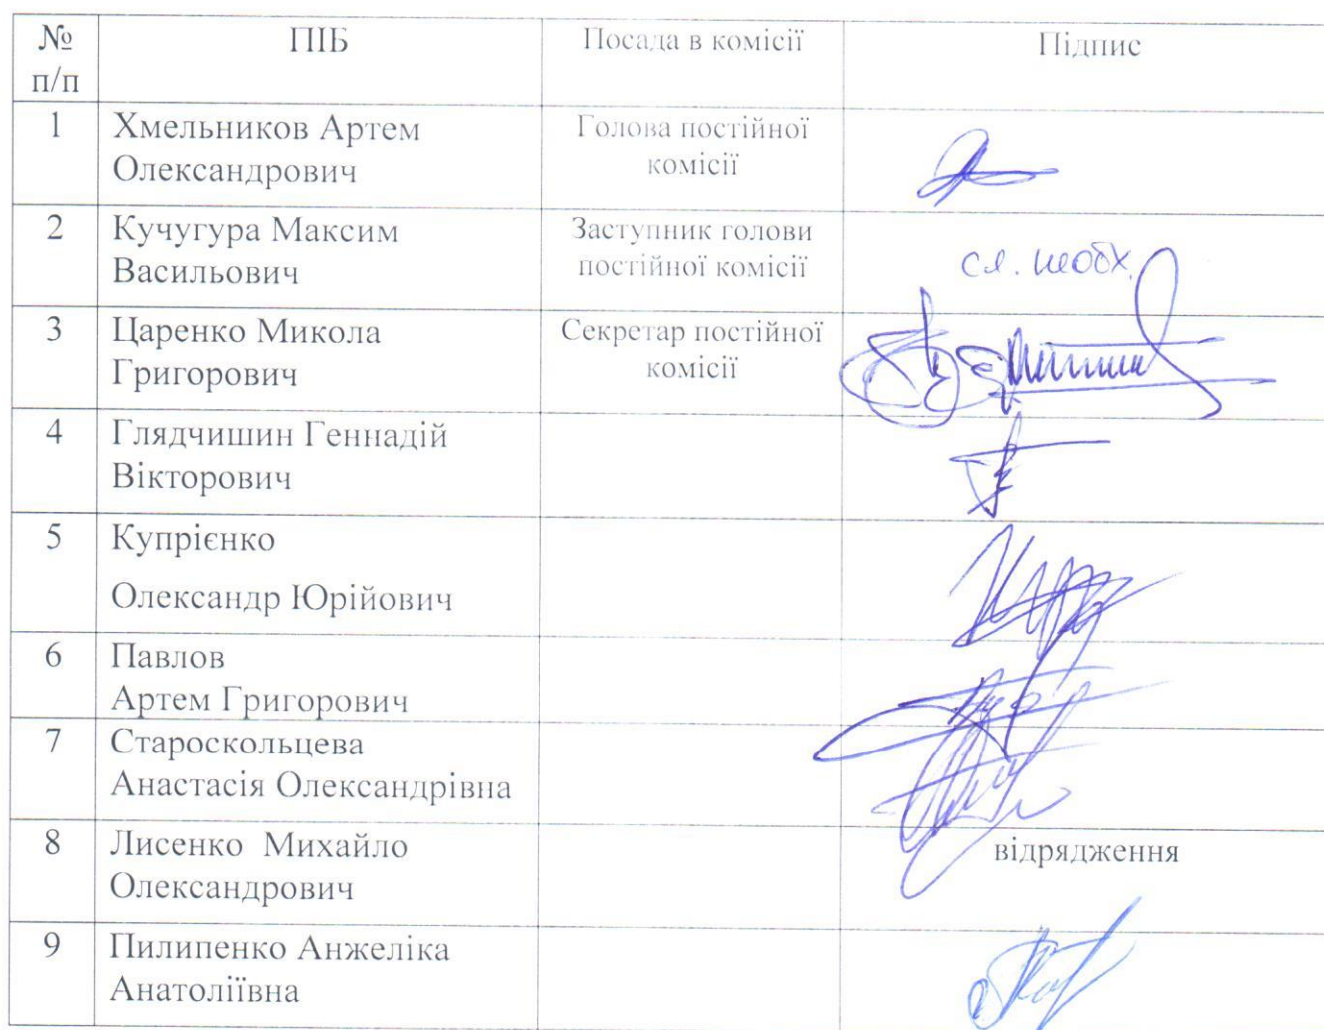 № п/п ПІБ Посада в комісії Підпис
1 Хмельников Артем Олександрович Голова постійної комісії
2 Кучугура Максим Васильович Заступник голови постійної комісії сл. необх.
3 Царенко Микола Григорович Секретар постійної комісії
4 Глядчишин Геннадій Вікторович
5 Купрієнко Олександр Юрійович
6 Павлов Артем Григорович
7 Староскольцева Анастасія Олександрівна
8 Лисенко Михайло Олександрович відрядження
9 Пилипенко Анжеліка Анатоліївна